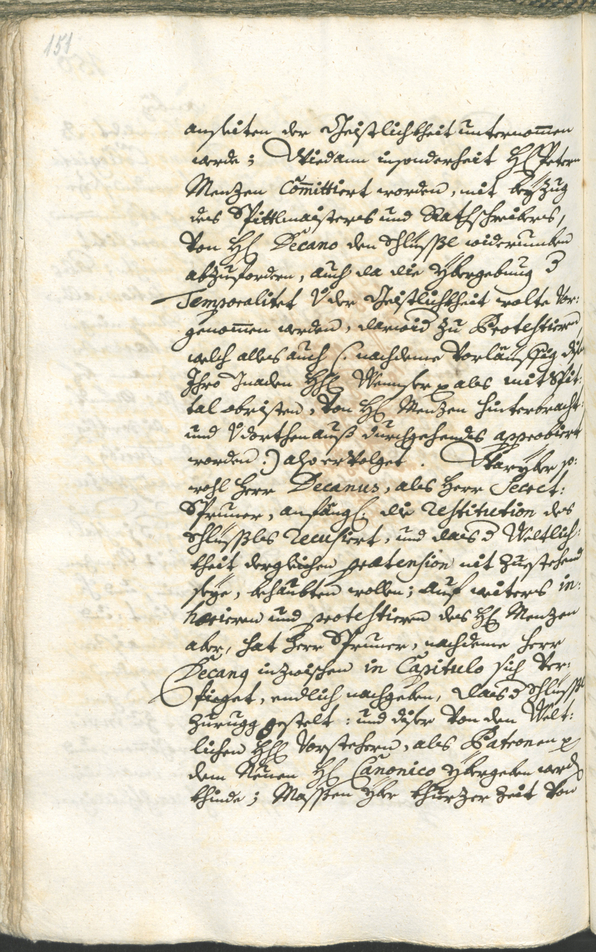 151
anseiten der Geistlichkeit unternommen
werde; Wie dann insonderheit H: Peter
Menzen Committiert worden, mit beyzug
des Spittlmaisters und Rathschreibers,
von H: Decano den Schlüssl widerumben
abzufordern, auch da die Ybergebung d
Temporalitet von der Geistlichkeit wolte vor:
genommen werden, darwid zu Protestiern
welch alles auch /: nachdeme vorläuffig dise
Ihro Gnaden HH: als mit Spit:
tal obristen, von H: Menzen hinterbracht
und dorthen auß durchgehends approbiert
worden :/ also ervolget. Wariber so:
wohl Herr Decanus, als Herr Secret:
Spruner, anfangs die restitution des
Schlüssles recusiert, und dass d Weltlich:
kheit dergleichen prætension nit zuestehend
seye, behaubten wollen; auf weiters in:
hærieren und protestieren des H: Menzen
aber, hat Herr Spruner, nachdeme Herr
Decang inzwischen in Capitulo sich ver:
fieget, endlich nachgeben, dass d Schlüssl
zurugg gestelt: und diser von den Welt:
lichen HH: Vorstehern, als Patronen
dem Neuen H: Canonico ybergeben werd
khinde; Massen yber khurzer Zeit von